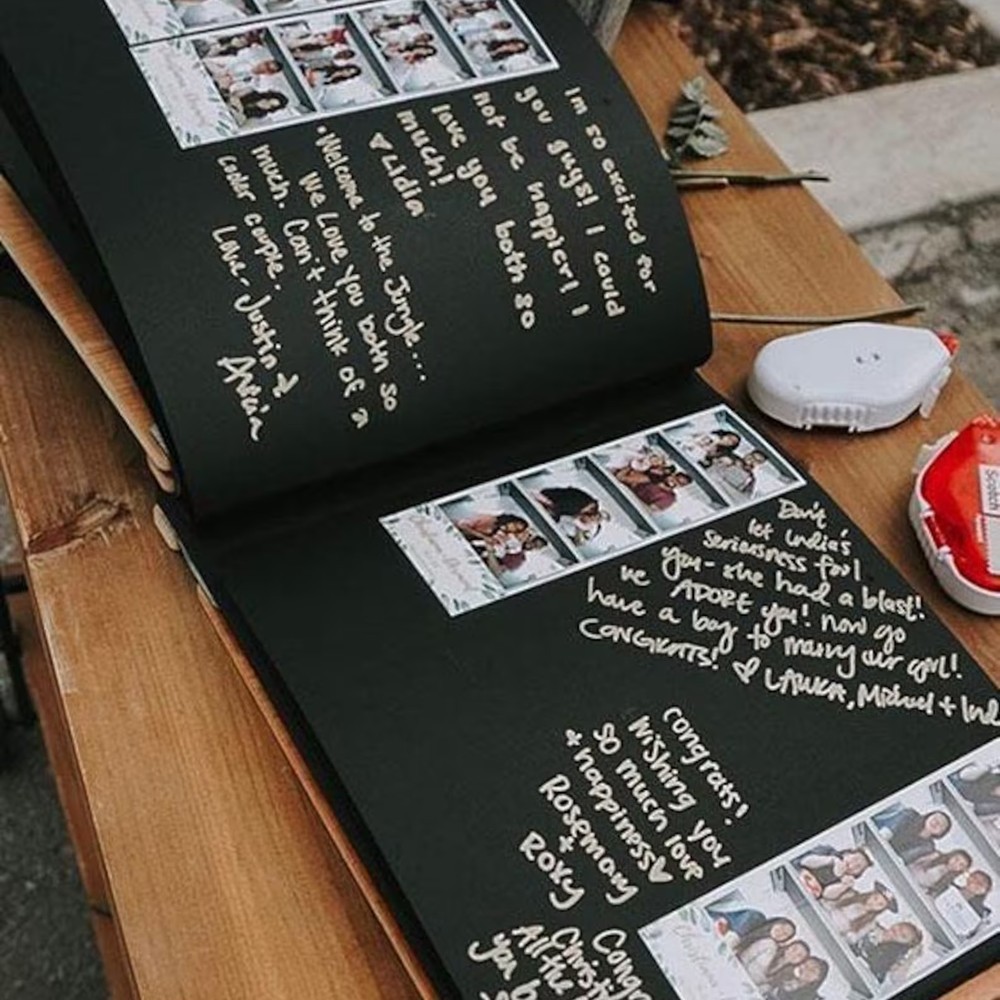 Im so excited for
you guys! I could
not be happier! I
love you both so
much!
♥ Lidia
·Welcome to the Jungle...
We Love You both so
much. Can't think of a
cooler couple.
Love- Justin &
Don't
let India's
seriousness fool
you- she had a blast!
we ADORE you! now go
have a boy to marry our girl!
CONGRATS! ♡ LAURA, Michael + Ind
Congrats!
Wishing you
so much love
+ happiness♥
Rosemary
+
Roxy
Cong
Christi
All the
you b
Scotch